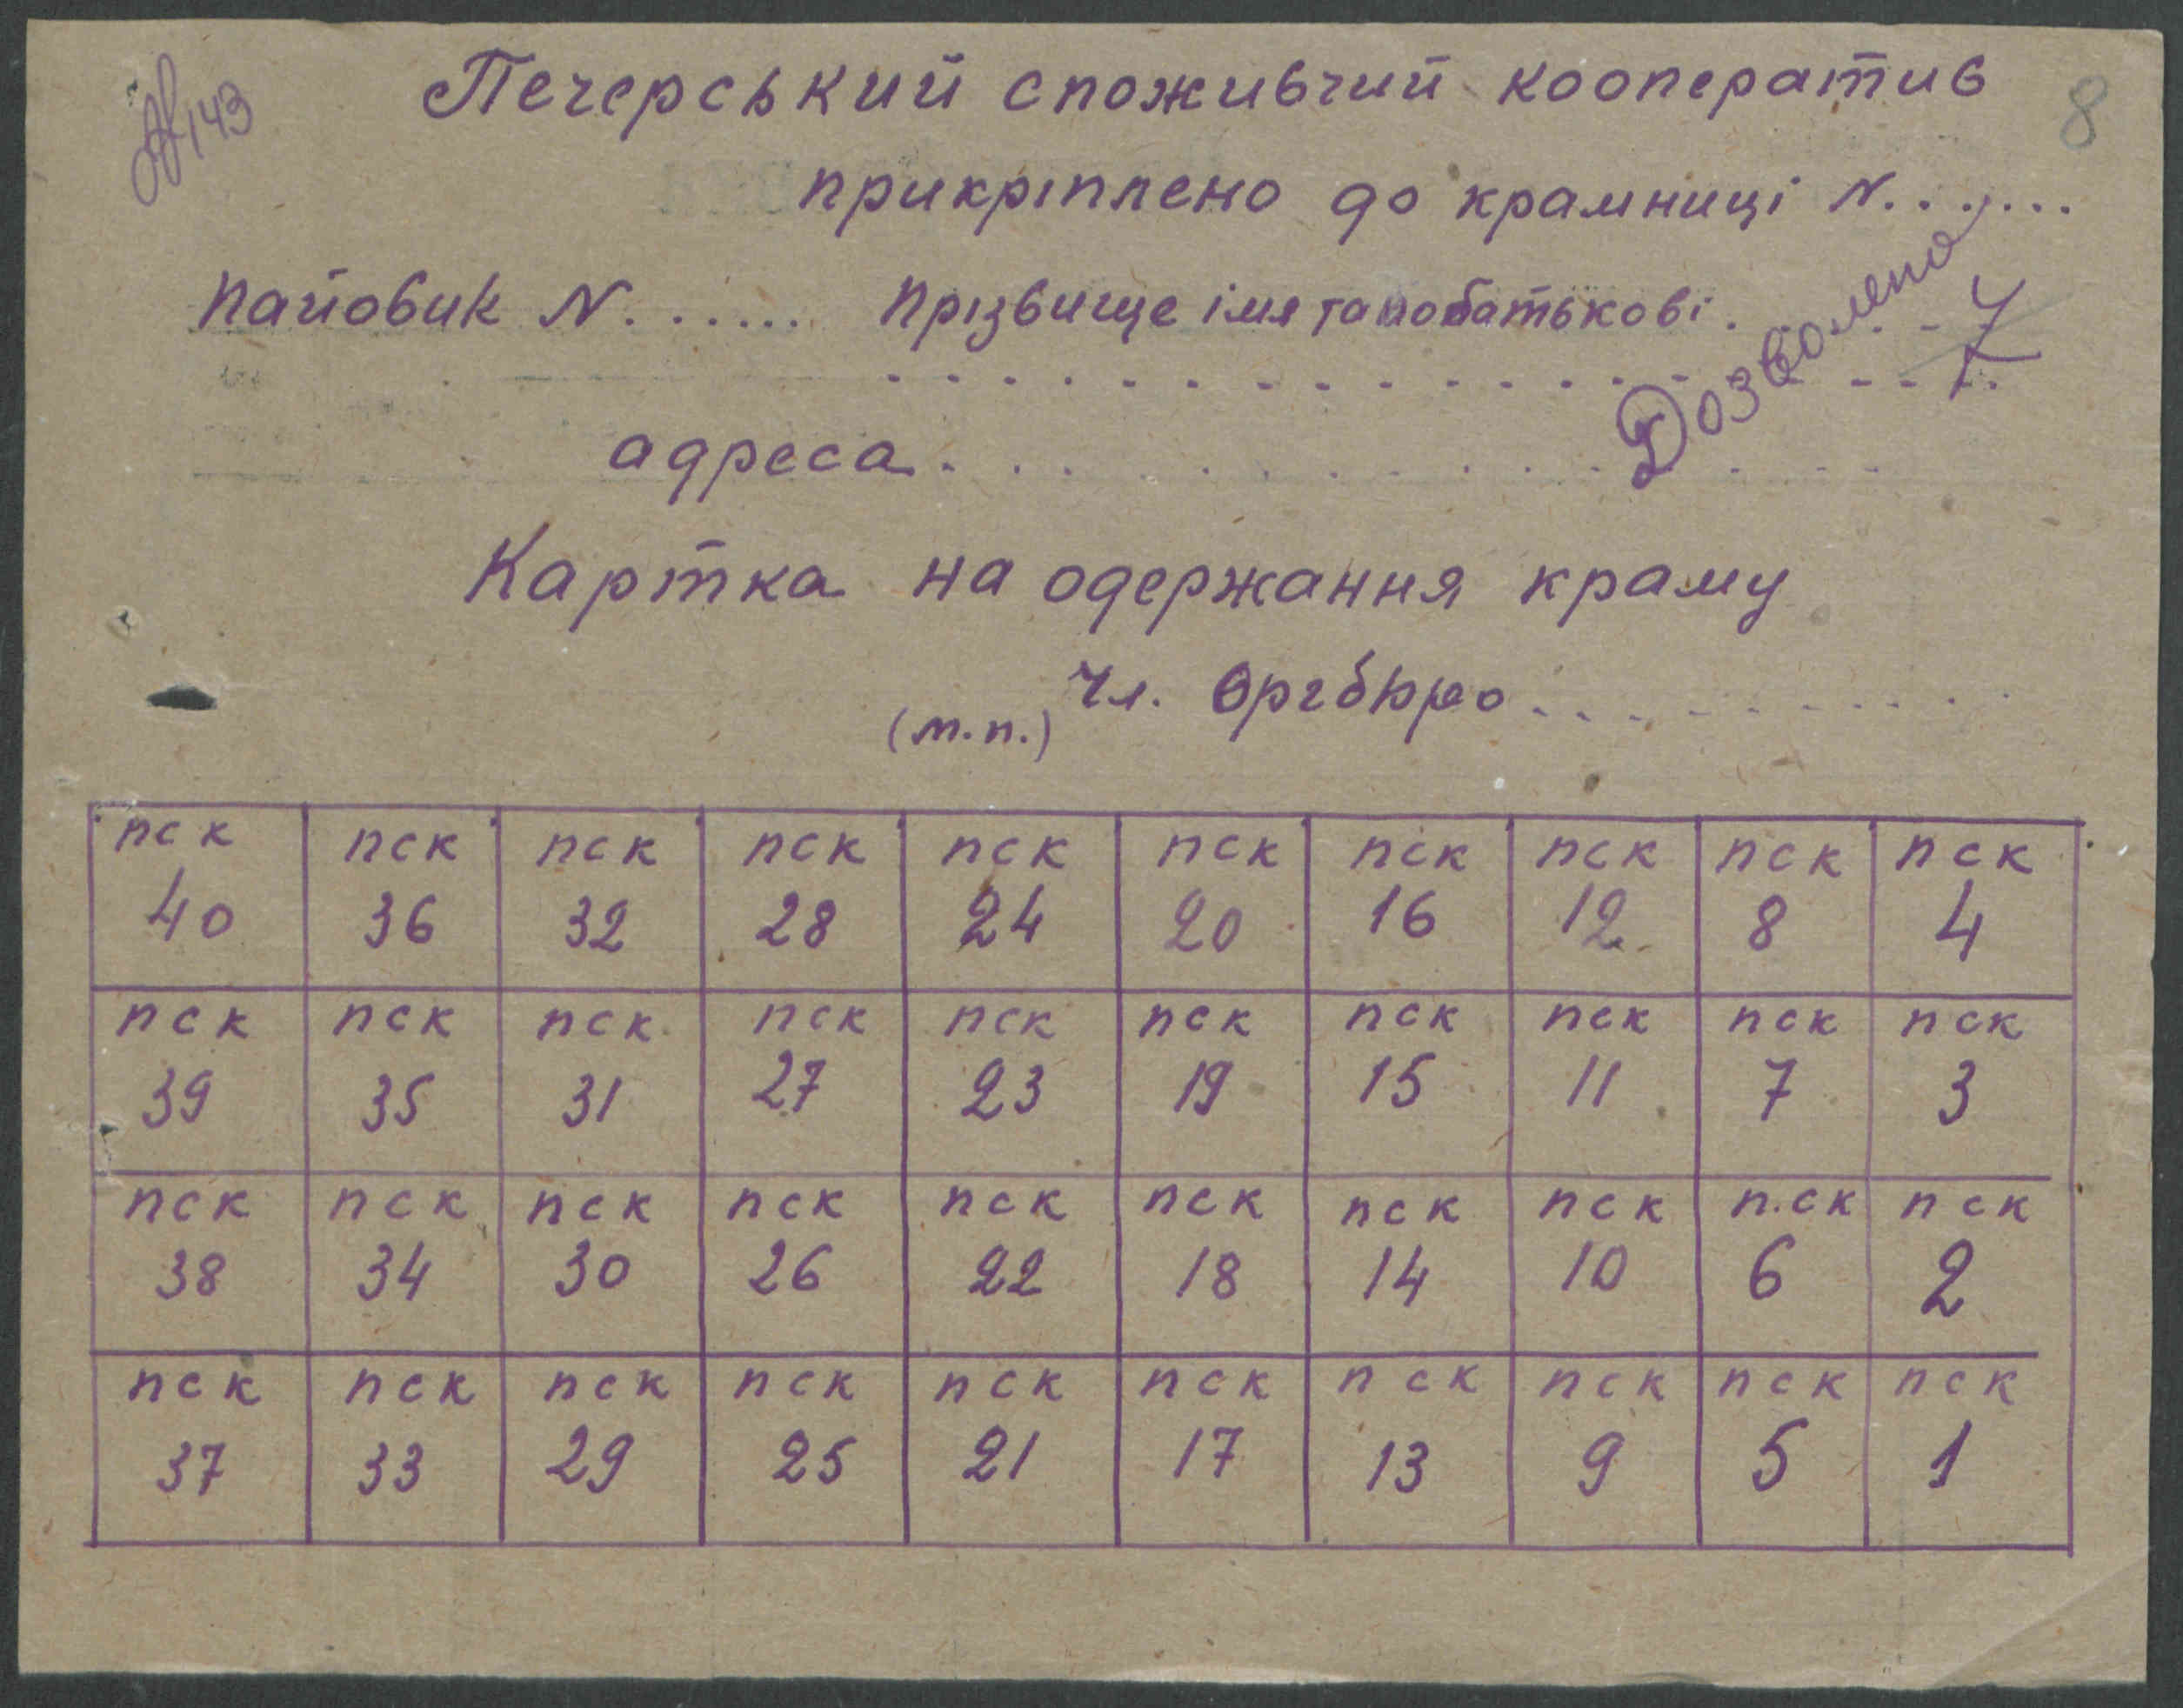 №143
Печерський споживчий кооператив
8
прикріплено до крамниці N. . . . . . .
Пайовик N. . . . . . Прізвище імя та побатькові. . . . .
Дозволено
адреса. . . . . . . . . . . . . .
Картка на одержання краму
Чл. Оргбюро. . . . . . . . . .
(м.п.)
пск пск пск пск пск пск пск пск пск пск
40 36 32 28 24 20 16 12 8 4
пск пск пск пск пск пск пск пск пск пск
39 35 31 27 23 19 15 11 7 3
пск пск пск пск пск пск пск пск п.ск пск
38 34 30 26 22 18 14 10 6 2
пск пск пск пск пск пск пск пск пск пск
37 33 29 25 21 17 13 9 5 1